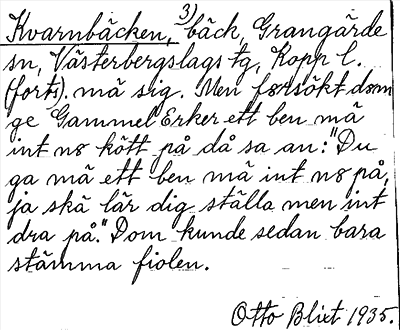 3)
Kvarnbäcken, bäck, Grangärde
sn, Västerbergslags tg, Kopp l.
(forts). må sig. Men försökt dom
ge Gammel Erker ett ben må
int nø kött på då sa an: "Du
ga mä ett ben må int nø på,
ja skä lär dig ställa men int
dra på." Dom kunde sedan bara
stämma fiolen.
Otto Blixt 1935.